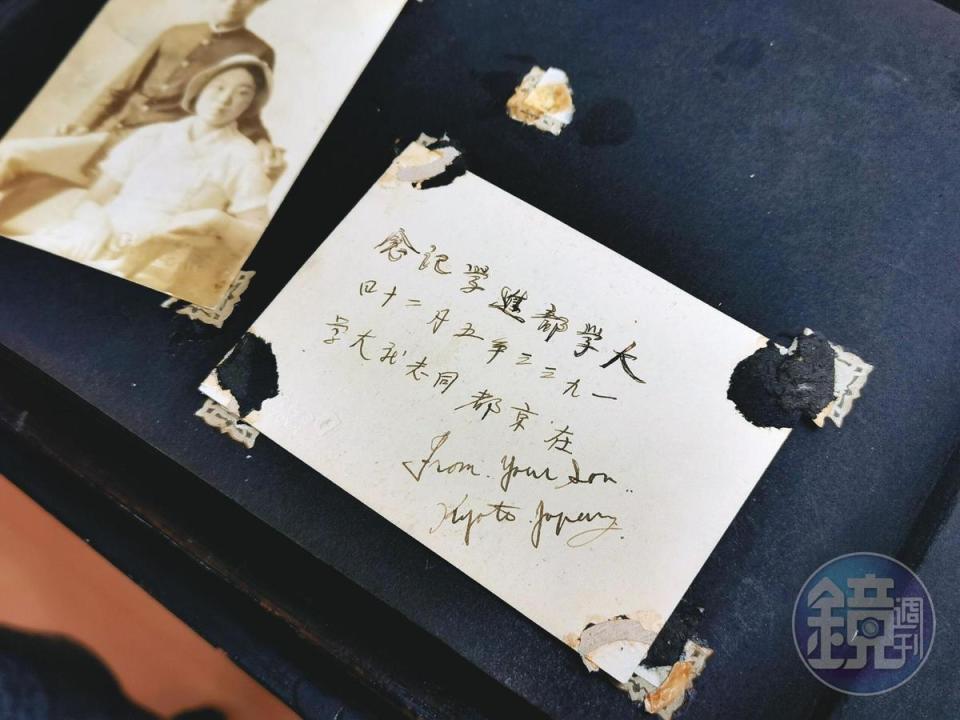 大學部進學記念
一九三三年五月二十四
在京都同志社大学
From. Your Son..
Kyoto. Japan.
鏡週刊